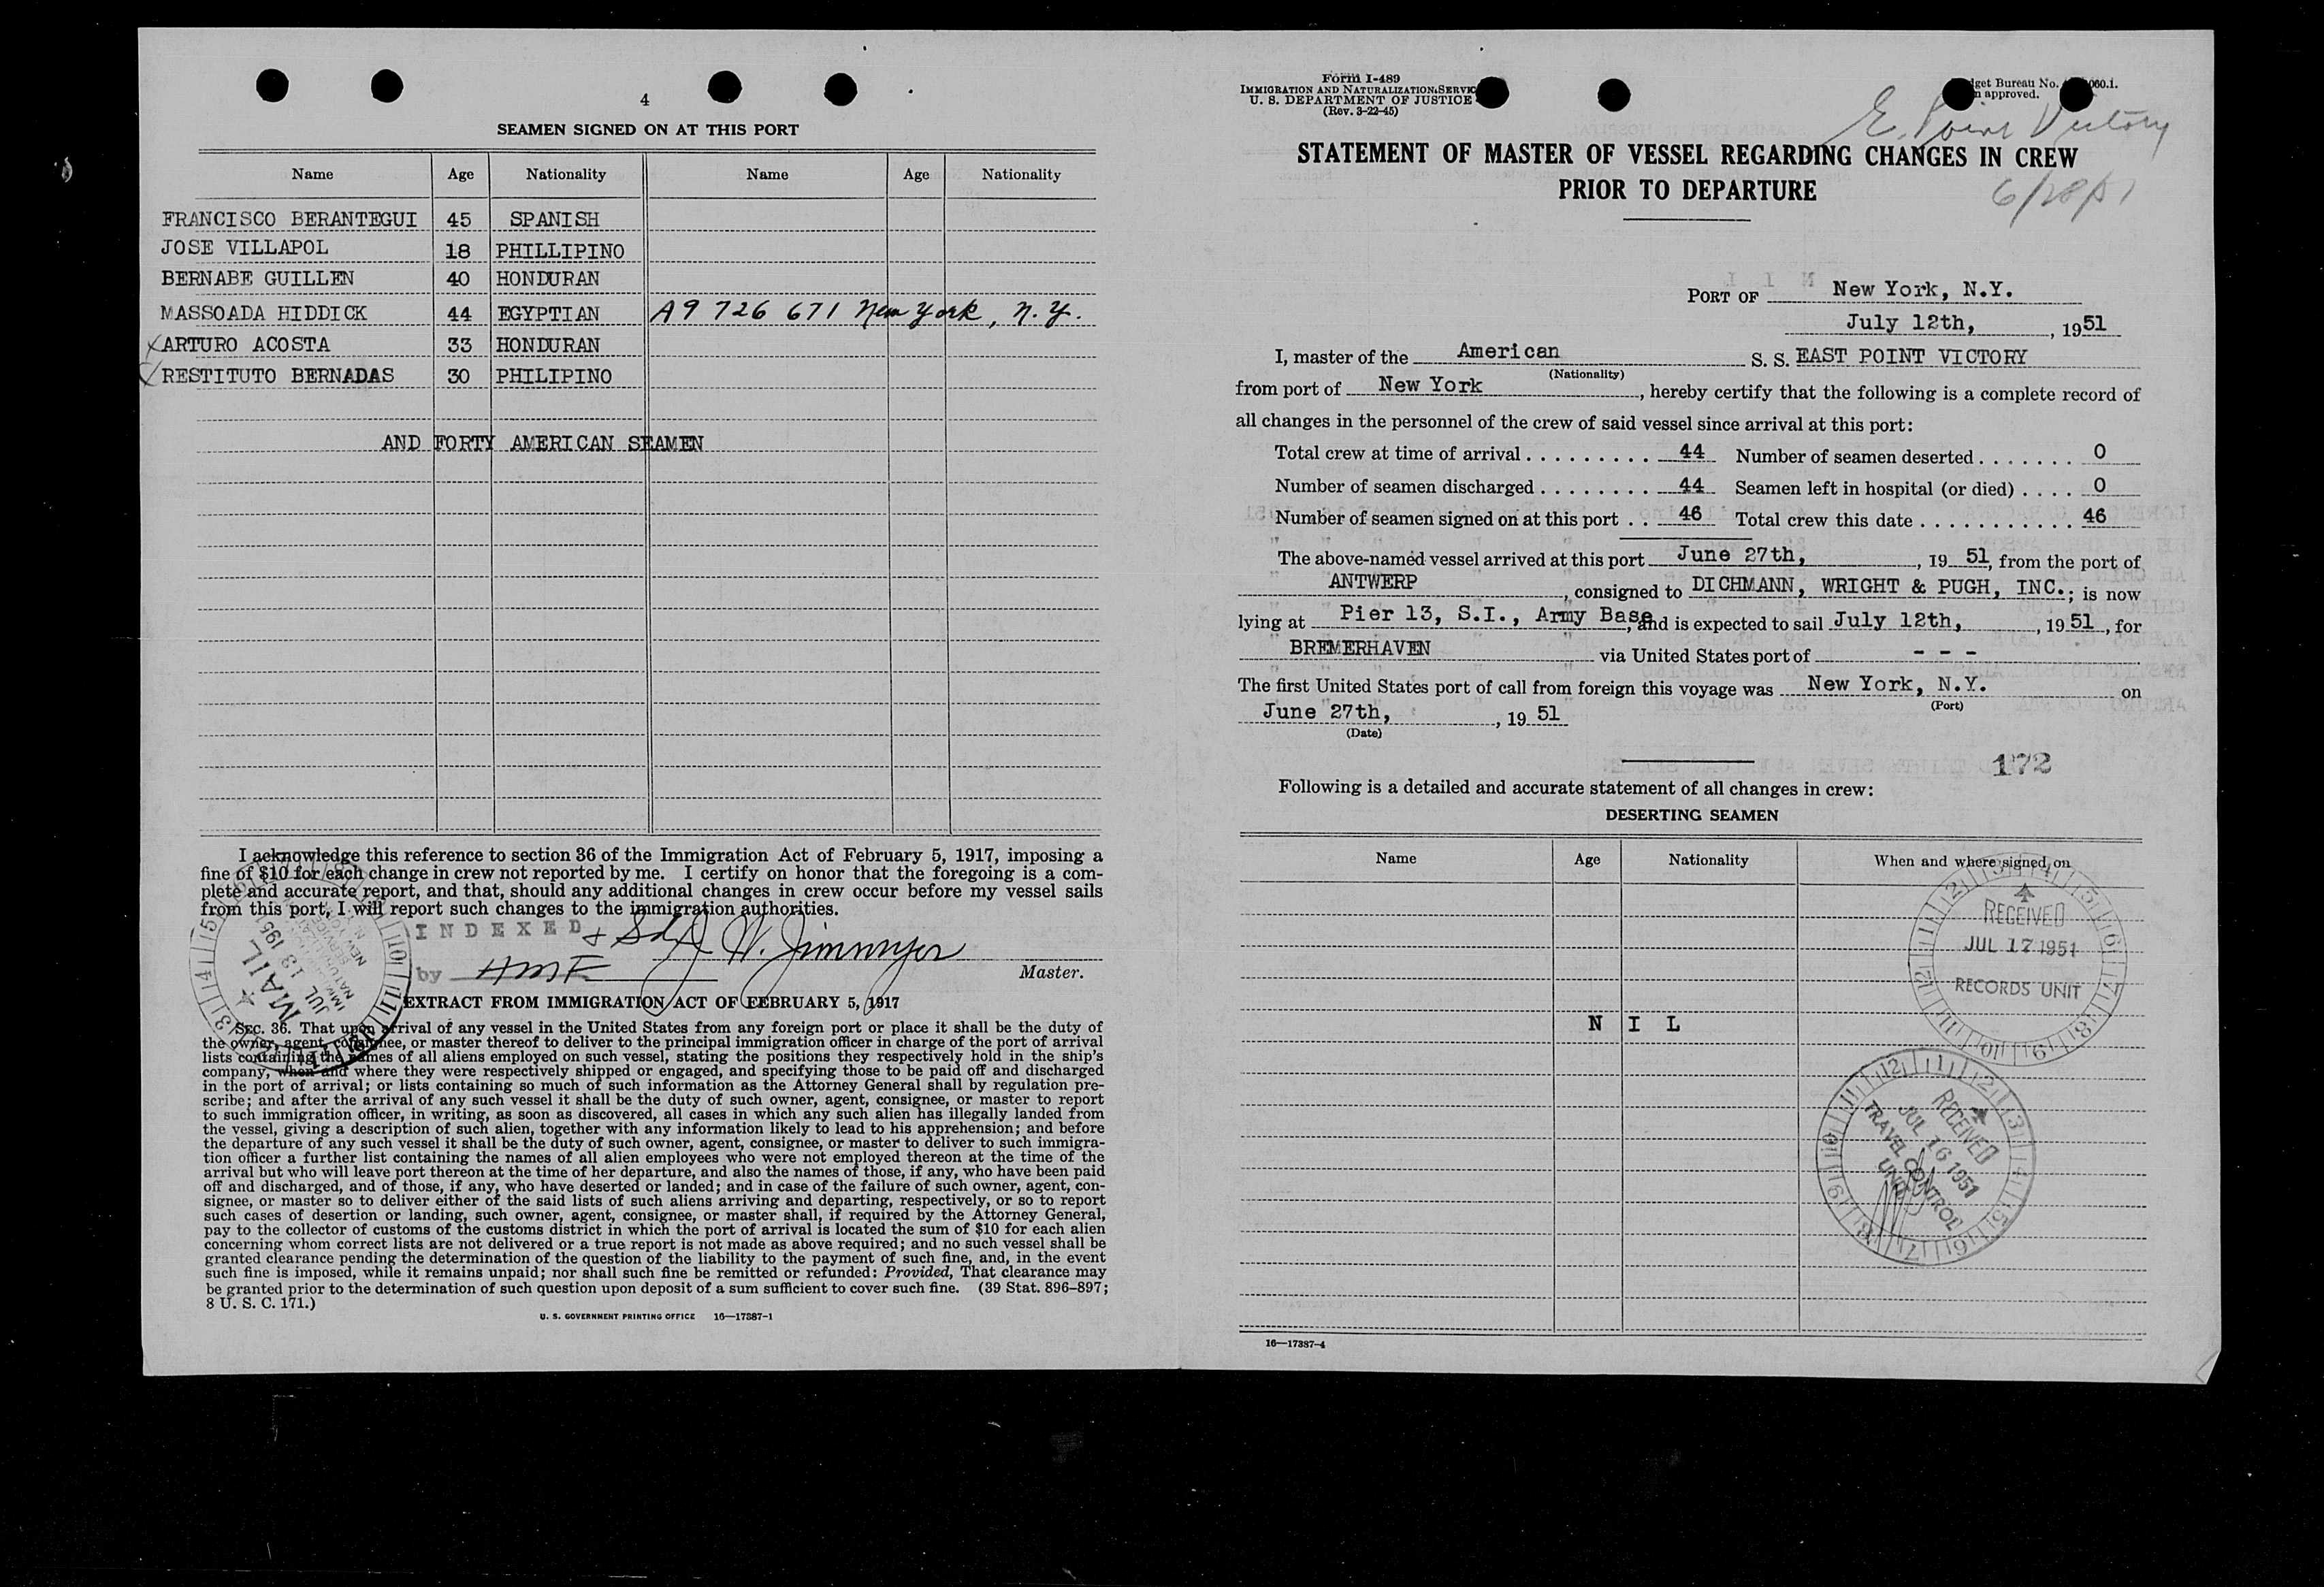 4
SEAMEN SIGNED ON AT THIS PORT
Name Age Nationality Name Age Nationality
FRANCISCO BERANTEGUI 45 SPANISH
JOSE VILLAPOL 18 PHILLIPINO
BERNABE GUILLEN 40 HONDURAN
MASSOADA HIDDICK 44 EGYPTIAN A9 726 671 New York, N.Y.
ARTURO ACOSTA 33 HONDURAN
RESTITUTO BERNADAS 30 PHILIPINO
AND FORTY AMERICAN SEAMEN
I acknowledge this reference to section 36 of the Immigration Act of February 5, 1917, imposing a
fine of $10 for each change in crew not reported by me. I certify on honor that the foregoing is a com-
plete and accurate report, and that, should any additional changes in crew occur before my vessel sails
from this port, I will report such changes to the immigration authorities.
INDEXED
by HMF
Master.
MAIL
JUL 13 195
EXTRACT FROM IMMIGRATION ACT OF FEBRUARY 5, 1917
SEC. 36. That upon arrival of any vessel in the United States from any foreign port or place it shall be the duty of
the owner, agent, consignee, or master thereof to deliver to the principal immigration officer in charge of the port of arrival
lists containing the names of all aliens employed on such vessel, stating the positions they respectively hold in the ship's
company, when and where they were respectively shipped or engaged, and specifying those to be paid off and discharged
in the port of arrival; or lists containing so much of such information as the Attorney General shall by regulation pre-
scribe; and after the arrival of any such vessel it shall be the duty of such owner, agent, consignee, or master to report
to such immigration officer, in writing, as soon as discovered, all cases in which any such alien has illegally landed from
the vessel, giving a description of such alien, together with any information likely to lead to his apprehension; and before
the departure of any such vessel it shall be the duty of such owner, agent, consignee, or master to deliver to such immigra-
tion officer a further list containing the names of all alien employees who were not employed thereon at the time of the
arrival but who will leave port thereon at the time of her departure, and also the names of those, if any, who have been paid
off and discharged, and of those, if any, who have deserted or landed; and in case of the failure of such owner, agent, con-
signee, or master so to deliver either of the said lists of such aliens arriving and departing, respectively, or so to report
such cases of desertion or landing, such owner, agent, consignee, or master shall, if required by the Attorney General,
pay to the collector of customs of the customs district in which the port of arrival is located the sum of $10 for each alien
concerning whom correct lists are not delivered or a true report is not made as above required; and no such vessel shall be
granted clearance pending the determination of the question of the liability to the payment of such fine, and, in the event
such fine is imposed, while it remains unpaid; nor shall such fine be remitted or refunded: Provided, That clearance may
be granted prior to the determination of such question upon deposit of a sum sufficient to cover such fine. (39 Stat. 896–897;
8 U. S. C. 171.)
U. S. GOVERNMENT PRINTING OFFICE 16—17387-1
Form I-489
IMMIGRATION AND NATURALIZATION SERVIC
U. S. DEPARTMENT OF JUSTICE
(Rev. 3-22-45)
get Bureau No. 060.1.
approved.
E. Point Victory
STATEMENT OF MASTER OF VESSEL REGARDING CHANGES IN CREW
PRIOR TO DEPARTURE
6/28/51
PORT OF New York, N.Y.
July 12th, , 1951
I, master of the American S. S. EAST POINT VICTORY
(Nationality)
from port of New York, hereby certify that the following is a complete record of
all changes in the personnel of the crew of said vessel since arrival at this port:
Total crew at time of arrival . . . . . . . . . 44 Number of seamen deserted . . . . . . . 0
Number of seamen discharged . . . . . . . . 44 Seamen left in hospital (or died) . . . . 0
Number of seamen signed on at this port . . 46 Total crew this date . . . . . . . . . . . . 46
The above-named vessel arrived at this port June 27th, , 19 51, from the port of
ANTWERP , consigned to DICHMANN, WRIGHT & PUGH, INC.; is now
lying at Pier 13, S.I., Army Base, and is expected to sail July 12th, , 1951, for
BREMERHAVEN via United States port of - - -
The first United States port of call from foreign this voyage was New York, N.Y. on
(Port)
June 27th, , 19 51
(Date)
172
Following is a detailed and accurate statement of all changes in crew:
DESERTING SEAMEN
Name Age Nationality When and where signed on
RECEIVED
JUL 17 1951
RECORDS UNIT
N I L
RECEIVED
JUL 16 1951
TRAVEL CONTROL
UNIT
16—17387-4